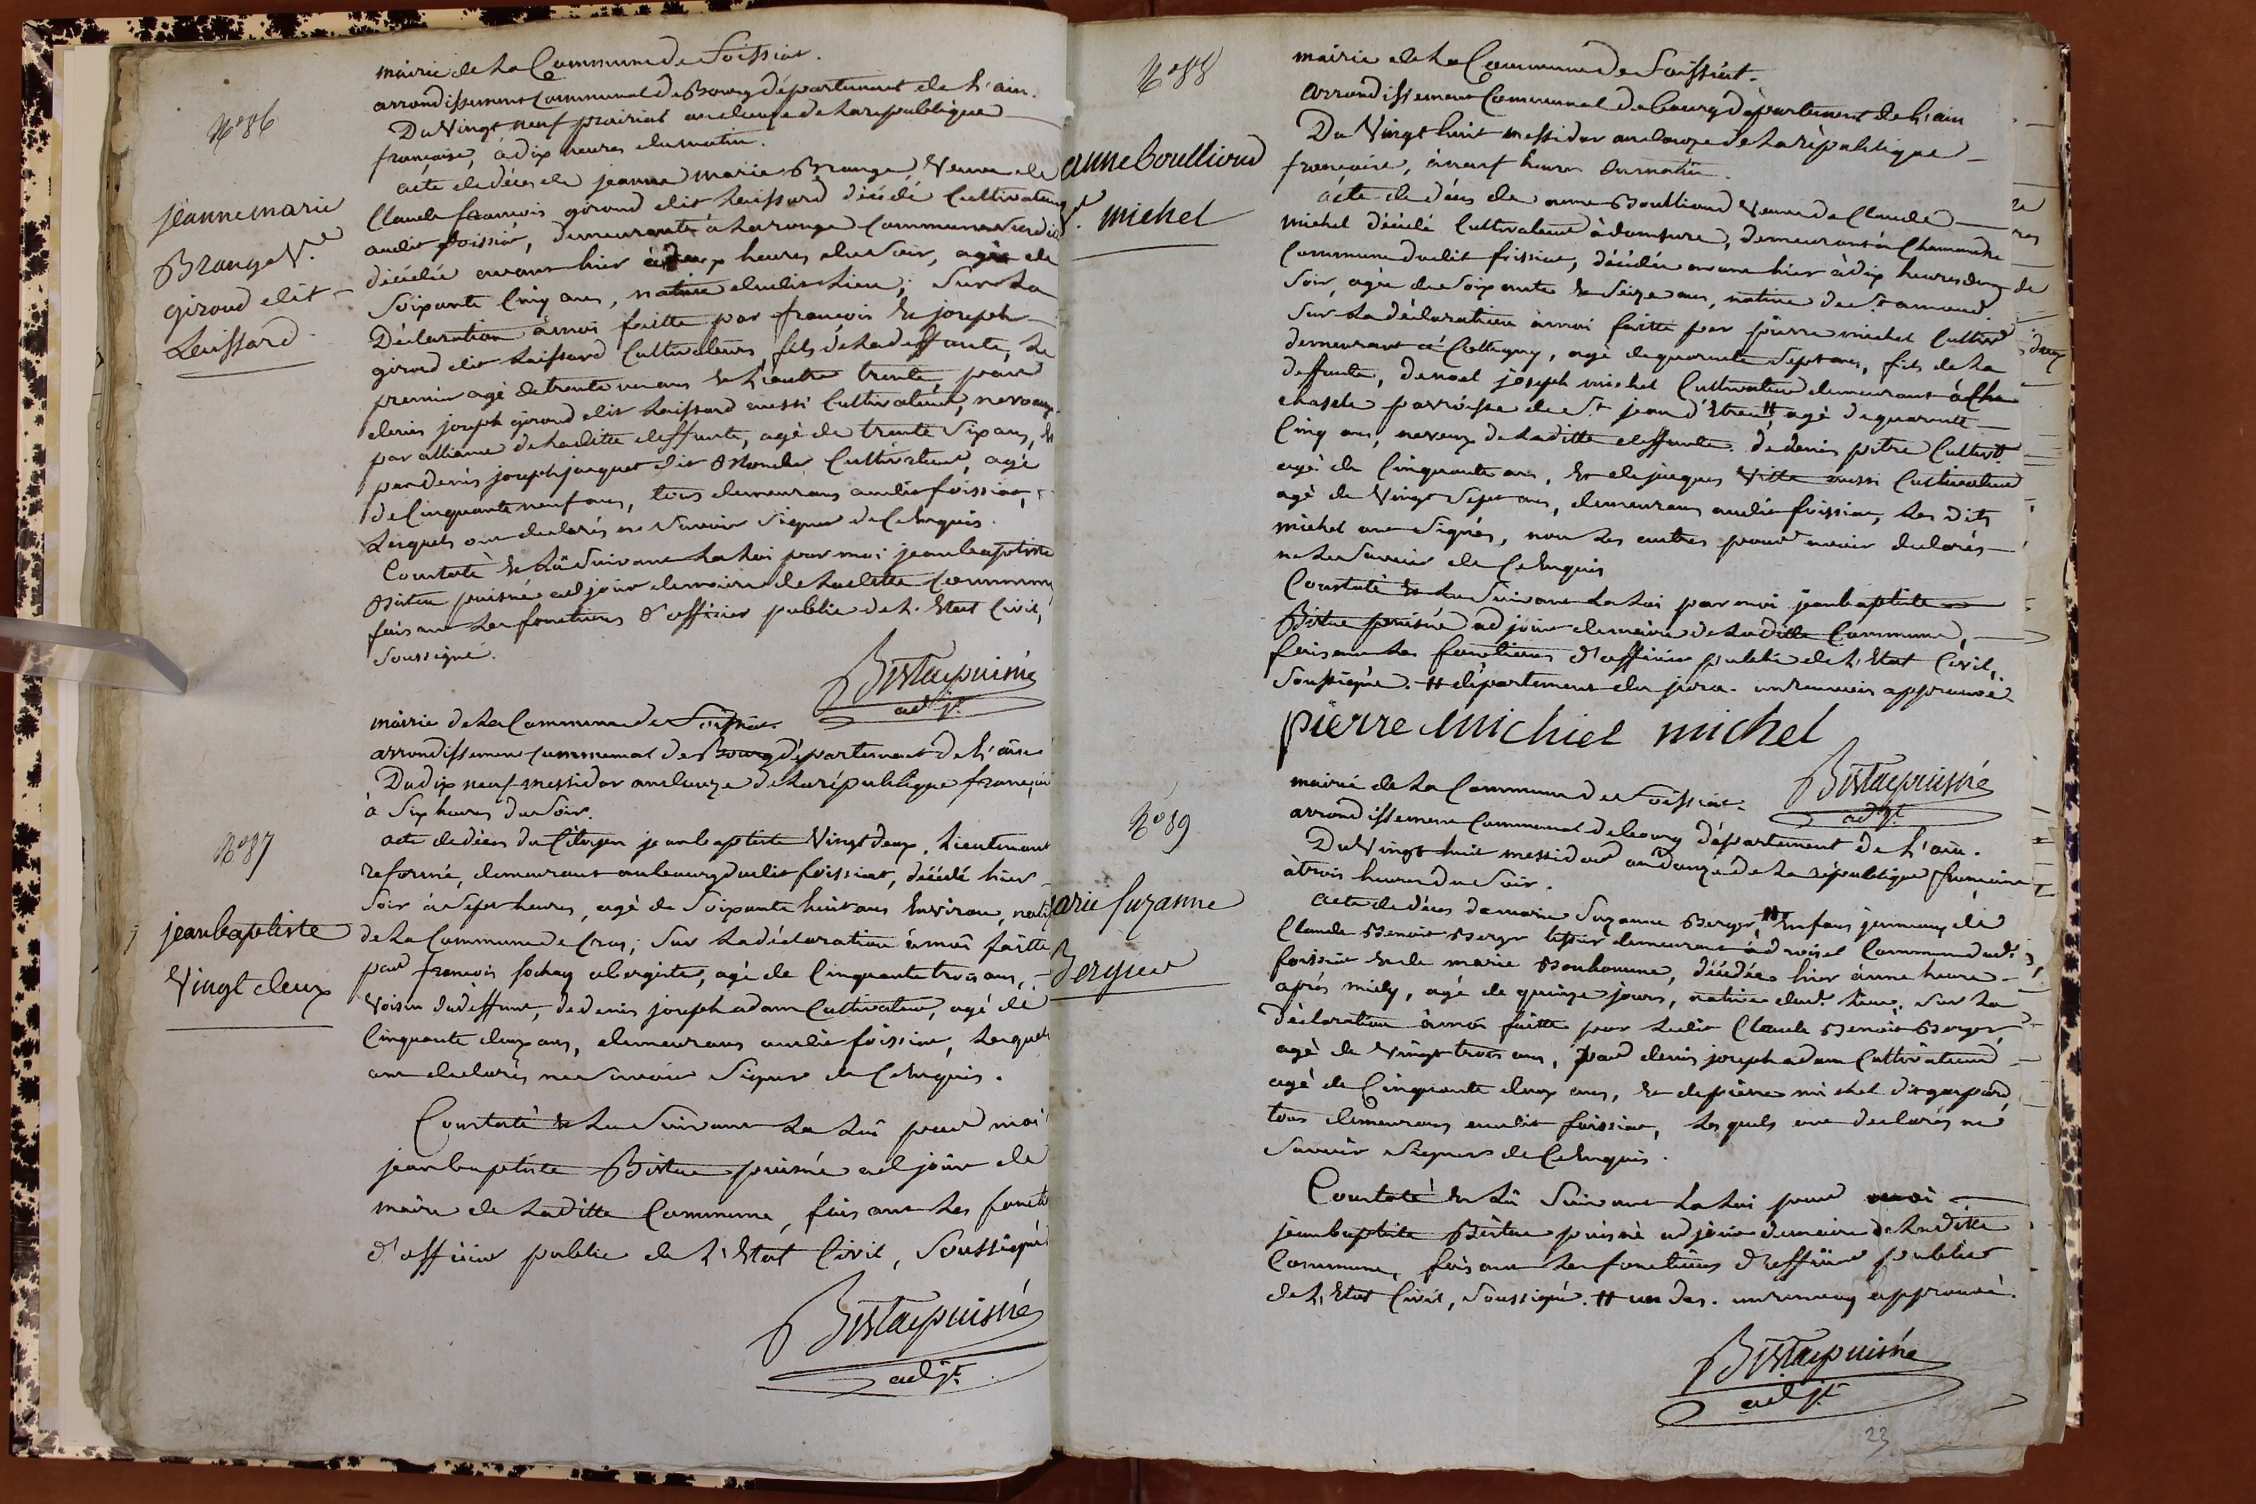 mairie de La Commune de Foissiat.
arrondissement Communal de Bourg département de L'ain.
Du Vingt neuf prairial an douze de La republique
française, à dix heures du matin.
N.º 86
jeanne marie
Brange V.e
giroud dit
Laissard
acte de déces de jeanne marie Brange, Veuve de
Claude francois giroud dit Laissard décédé Cultivateur
audit foissiat, demeurante à La ronge Commune Susdite
décédée avant hier à deux heures du Soir, agée de
Soixante Cinq ans, native dudit Lieu; Sur La
Déclaration à moi faitte par francois & joseph
giroud dit Laissard Cultivateurs, fils de La deffunte, Le
premier agé de trente un ans & L'autre trente, par
denis joseph giroud dit Laissard aussi Cultivateur, neveux
par alliance de Laditte deffunte, agé de trente Six ans, &
par denis joseph jacquet dit Cultivateur, agé
de Cinquante neuf ans, tous demeurans audit foissiat,
Lesquels ont declarés ne Savoir Signer de Ce Enquis.
Constaté & Lû Suivant La Loi par moi jean baptiste
Bistue puisné adjoint de maire de Laditte Commune
faisant Les fonctions d'officier public de L'Etat Civil,
Soussigné.
Bistuepuisné
adj.t
mairie de La Commune de Foissiat.
arrondissement Communal de Bourg département de L'ain
Du dix neuf messidor an douze de La république françai
à Six heures du Soir.
N.º 87
jean baptiste
Vingt deux
acte de déces du Citoyen jean baptiste Vingt deux, Lieutenant
reformé, demeurant au bourg dudit foissiat, décédé hier
Soir à Sept heures, agé de Soixante huit ans Environ, natif
de La Commune de Cras; Sur La déclaration à moi faitte
par francois fochay abergiste, agé de Cinquante trois ans,
Voisin du deffunt, de denis joseph adam Cultivateur, agé de
Cinquante deux ans, demeurans audit foissiat, Lesquels
ont declarés ne Savoir Signer de Ce Enquis.
Constaté & Lu Suivant La Loi par moi
jean baptiste Bistue puisné adjoint de
maire de Laditte Commune, faisant Les foncti
d'officier public de L'Etat Civil, Soussigné
Bistuepuisné
adj.t
mairie de La Commune de Foissiat.
arrondissement Communal de bourg département de L'ain
Du Vingt huit messidor an douze de La république
française, à neuf heures du matin.
N.º 88
anne boullioud
V.e michel
acte de déces de anne Boullioud Veuve de Claude
michel décédé Cultivateur à domsure, demeurant à Chamandre
Commune dudit foissiat, décédée avant hier à dix heures du
Soir, agée de Soixante & Seize ans, native de S.t amour.
Sur La déclaration à moi faitte par pierre michel Cultiv.r
demeurant à Colligny, agé de quarante Sept ans, fils de La
deffunte, de noel joseph michel Cultivateur demeurant à
chazele parroisse de S.t jean d'Etreux # agé de quarante
Cinq ans, neveux de Laditte deffunte. de denis pitre Cultivt.
agé de Cinquante ans, & de jacques Vitte aussi Cultivateur
agé de Vingt Sept ans, demeurans audit foissiat, Les dits
michel ont Signés, non Les autres pour avoir declarés
ne Le Savoir de Ce Enquis
Constaté & Lu Suivant La Loi par moi jean baptiste
Bistue puisné adjoint de maire de Laditte Commune,
faisant Les fonctions d'officier public de L'Etat Civil,
Soussigné. # département du jura. un renvoi approuvé
pierre Michiel michel
Bistuepuisné
adj.t
mairie de La Commune de Foissiat.
arrondissement Communal de bourg département de L'ain.
Du Vingt huit messidor an douze de La république française
à trois heures du Soir.
N.º 89
arie Suzanne
Bergier
acte de déces de marie Suzanne Berger, # Enfans jumeaux de
Claude Benoit Berger tissier demeurant à Commune dud.t
foissiat & de marie Bonhomme, décédée hier à une heure
après midy, agé de quinze jours, native dud.t Lieu. Sur La
déclaration à moi faitte par Ledit Claude Benoit Berger
agé de Vingt trois ans, par denis joseph adam Cultivateur
agé de Cinquante deux ans, & de pierre michel dit gaspard,
tous demeurans audit foissiat, Lesquels ont declarés ne
Savoir Signer de Ce Enquis.
Constaté & Lû Suivant La Loi par moi
jean baptiste Bistue puisné adjoint de maire de Laditte
Commune, faisant Les fonctions d'officier public
de L'Etat Civil, Soussigné. # un des. un renvoy approuvé.
Bistuepuisné
adj.t
23